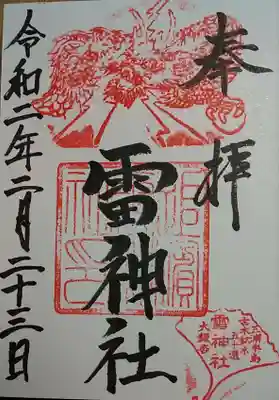 奉拝
雷神社
令和二年二月二十三日
雷神社